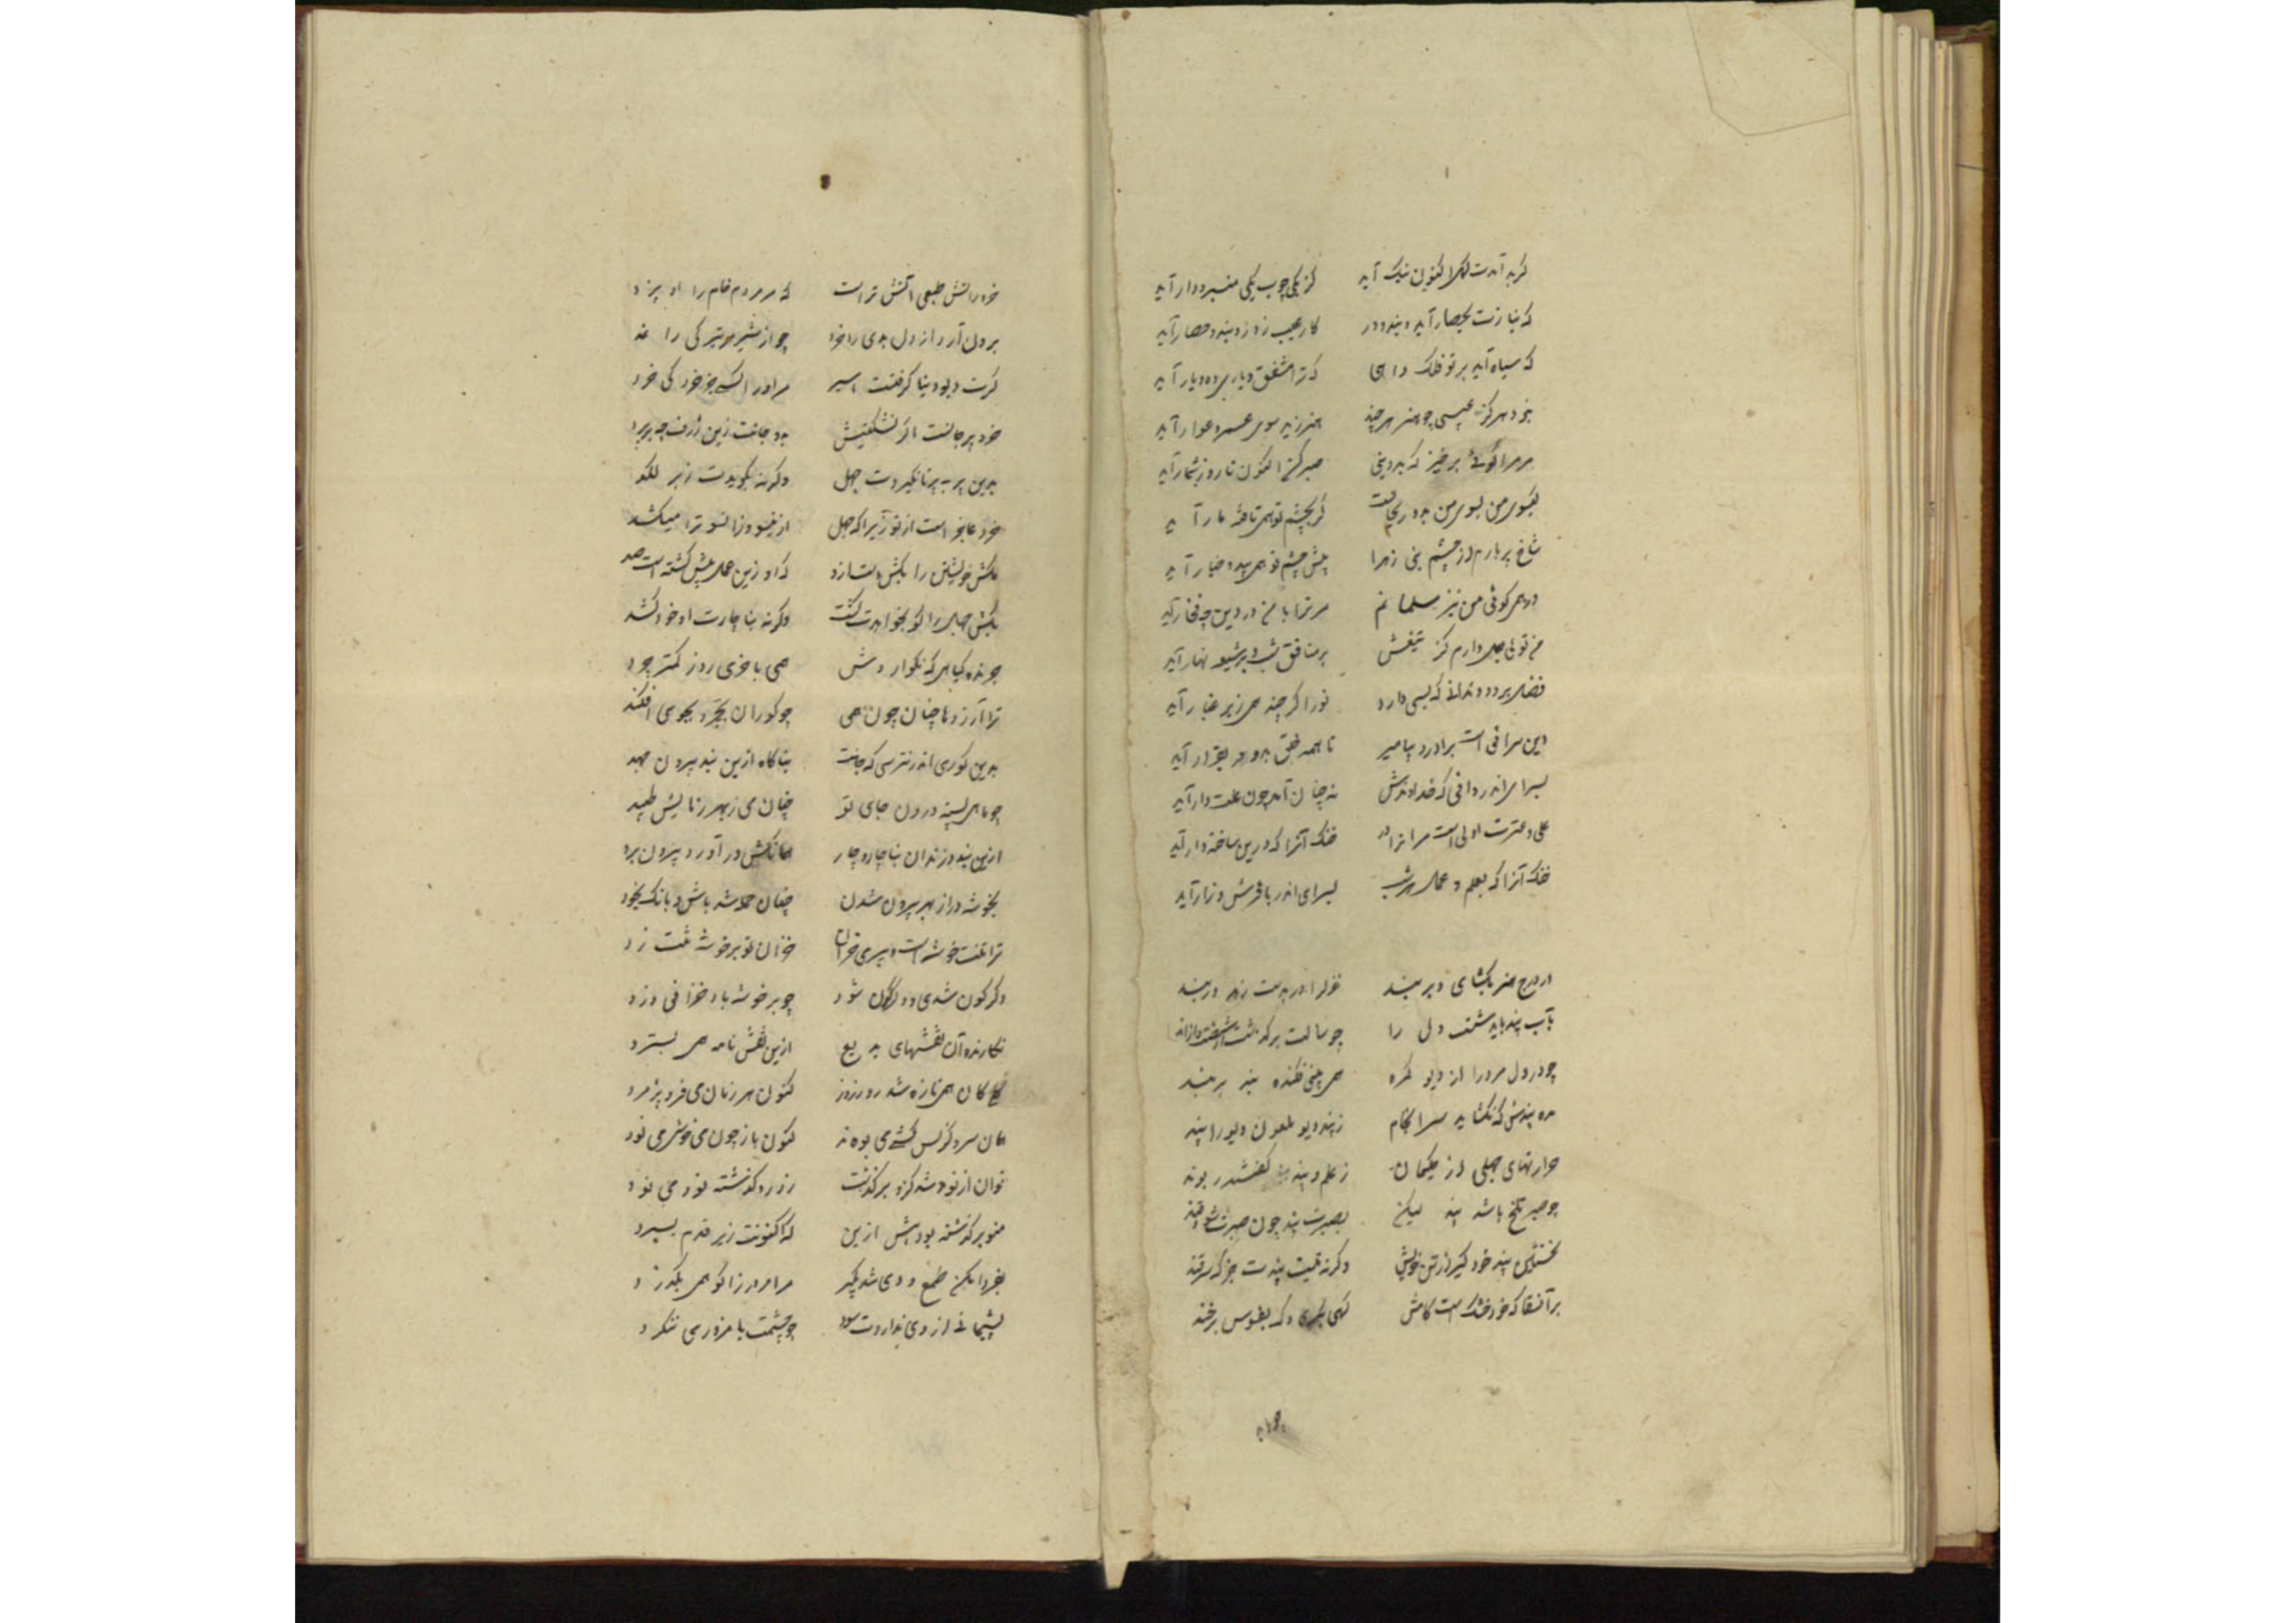 گر بد آمدت گهی اکنون نیک آید کز یکی چوب یکی منبر و دار آید
که نیازت بحصار آید و بند و در کار عجب ز در و بند و حصار آید
که سپاه آید بر تو فلک داهی که ترا مشفق و یار
نبود هرگز عیبی چو هنر هر چند هنر زید سوی عمرو عوار آید
مر مرا گوئی برخیز که بد دینی صبر کن اکنون تا روز شمار آید
گیسوی من بسوی من بد و ریحانست گر بچشم تو همی تافته مار آید
شاخ پر بارم از چشم بنی زهرا پیش چشم تو همی بید و چنار آید
ور همی گوئی من نیز مسلمانم مر ترا با من در دین چه فخار آید
من تولی بعلی دارم کز تیغش بر منافق شب و بر شیعه نهار آید
فضل بر دود ندانی که بسی دارد نور اگر چند همی زیر غبار آید
این سرافی است برادر و پیامبر تا همه خلق بدو در بقرار آید
بسرای اندر دانی که خداوندش نه چنان آمد چون غله دار آید
علی و عترت اولی است مر آنرا در خنک آنرا که درین ساخته دار آید
خنک آنرا که بعلم و عمل هر شب بسرای اندر با فرش و ازار آید
از درج هنر بگشای و بربند غزل را در بدست زهد دربند
بآب پند باید شست دل را چو سالت برگذشت از شصت و از اند
چو در دل مرد را از دیو گره همی بینی فکنده بند بر بند
مده پندش که نگشاید سرانجام ز بند دیو ملعون دیو را پند
حرارتهای جهلی از حکیمان ز علم و پند گفتند
چو صبر تلخ باشد پند لیکن بصبرت پند چون صبرت شود قند
نخستین پند خود گیر از تن خویش وگرنه نیست پندت جز که ترفند
بر آن سقا که خود خشک است کامش گهی بگری و گه بافسوس برخند
خرد آتش طبعی آتش تر است که مر مردم خام را او پزد
برون آرد از دل بدی را خرد چو از شیر مر تیرگی را نمد
گرت دیو دنیا گرفتست اسیر مر او را کسی جز خرد کی خرد
خرد پر جانست اگر نشکنیش بدو جانت زین ژرف چه بر پرد
بدین پر بپر تا نگیردت جهل وگرنه بکوبدت زیر لگد
خرد عاجز است از تو زیرا که جهل ازینسو وزانسو ترا میکشد
مکش خویشتن را بکش دست ازو که او زین عمل پیش کشته است صد
بکش جهل را کو بخواهدت کشت وگرنه بناچارت او خود کشد
چرنده گیاهی که نکو آردش همی باخری روز کمتر چرد
ترا آرزوها چنان چون همی چو کوران بجر و بجوی افکند
بدین کوری اندر نترسی که جانت بناگاه ازین بند بیرون جهد
چو ماهی بسته درون جای تو چنان می ز بهر رهایش طپد
ازین بند و زندان بناچار و چار همانکش درآورد بیرون برد
بخوشه در از بهر بیرون شدن چنان جمله شد باش و دانک بخود
ترا تنت خوشه است و پیری خزان خزان تو بر خوشه تنت زد
دگرگون شدی و دگرگون شود چو بر خوشه باد خزانی وزد
نگارنده آن نقشهای بدیع ازین نقش نامه همی بسترد
گلی کان همی تازه شد روز روز کنون هر زمان می فرو پژمرد
همان سرو کز بس گشی می بود کنون باز چون می خوشی می نود
نوان از نود شد کزو برگذشت ز درد گذشته نود می نود
منوبر گذشته بود پیش ازین که اکنونت زیر قدم بسپرد
بفردا مکن طمع و دی شد بگیر مر امروز را کو همی بگذرد
پشیمانی از دی نداردت سود چو چشمت بامروز می ننگرد